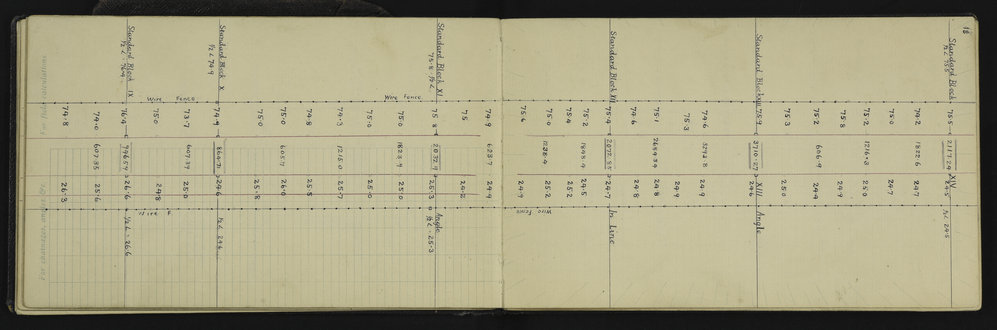 18
For chainages, angles, etc.
For final calculations
Standard Block IX
½ L 76.4
Standard Block X
½ L 74.9
Standard Block XI
75.8 ½ L
Standard Block XII
Standard Block XIII
Standard Block
½ L 75.5
Wire Fence
Wire Fence
74.8
74.0
76.4
75.0
73.7
74.9
75.0
75.0
74.8
74.3
75.0
75.0
75.8
75
74.9
75.4
75.0
75.4
75.2
75.4
74.6
75.1
75.3
74.6
75.9
75.3
75.2
75.8
75.2
75.0
74.2
75.5
607.35
607.39
605.7
1215.0
1823.9
623.7
1238.4
1848.4
2659.34
606.9
1216.3
1822.6
26.3
25.6
26.6
24.8
25.0
24.6
25.8
26.0
25.5
25.7
25.0
25.0
25.3
24.2
24.9
24.9
25.2
25.2
24.5
24.7
24.8
24.8
24.9
24.9
24.6
25.0
24.9
24.9
25.0
24.7
24.7
24.5
XIII
XIV
Wire F
½ L = 26.6
½ L 24.6
Angle
½ L = 25.3
Wire Fence
In Line
Angle
½ L 24.5